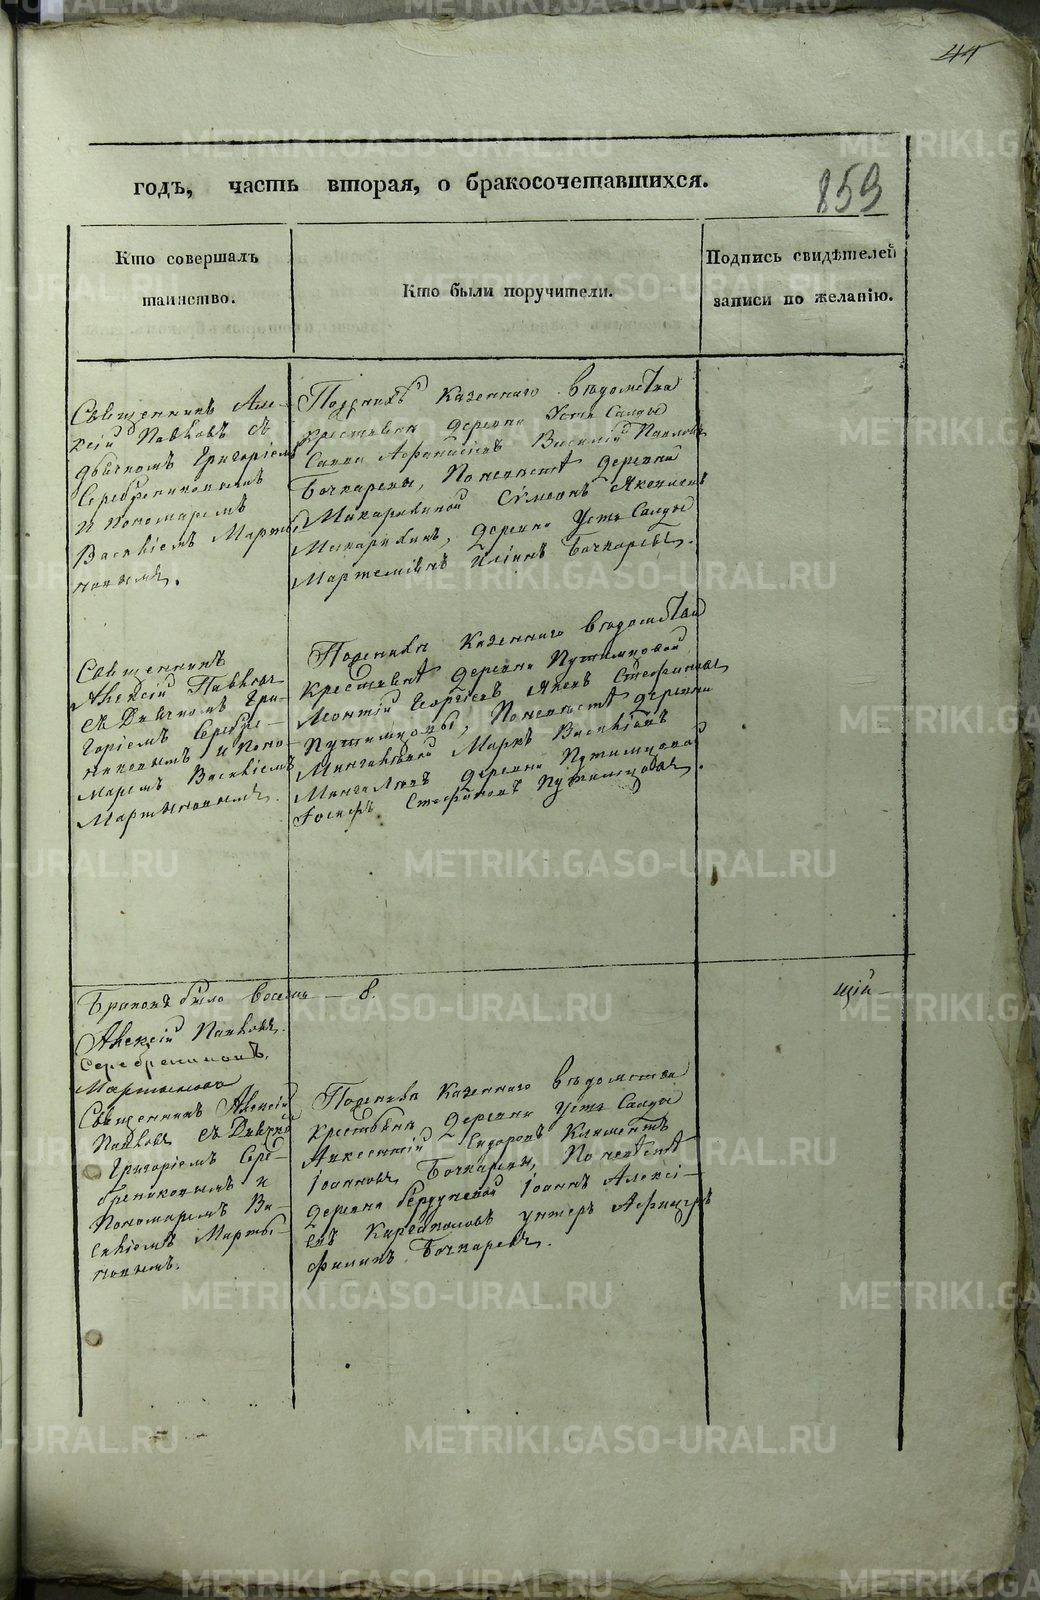 44
годъ, часть вторая, о бракосочетавшихся.
859
Кто совершалъ
таинство.
Кто были поручители.
Подпись свидѣтелей
записи по желанію.
Священникъ Але-
ксій Павловъ съ
дьячкомъ Григоріемъ
Серебрениковымъ
и Пономаремъ
Василіемъ Марты-
новымъ.
Казеннаго Вѣдомства
крестьяне деревни Усть Салды
Савва Афанасіевъ Василій Павловъ
Бочкаревы, По невѣсте деревни
Макарихиной Сѵмеонъ Яковлевъ
Макарихинъ, деревни Усть Салды
Илiинъ Бочкаревъ.
Священникъ
Алексій Павловъ
съ Дьячкомъ Гри-
горіемъ Серебре-
никовымъ и Поно-
маремъ Василіемъ
Мартыновымъ.
По женихѣ Казеннаго Вѣдомства
Крестьяне деревни Путимцовой
Леонтій Георгіевъ Яковъ Стефановъ
Путимцовы, По невѣсте деревни
Маркъ Василіевъ
деревни Путимцовой
Іосифъ Стефановъ Путимцовъ.
Браковъ было восемь — 8.
щій
Алексій Павловъ.
Серебрениковъ.
Мартыновъ
Священникъ Алексій
Павловъ съ Дьячко
Григоріемъ Сере-
брениковымъ и
Пономаремъ Ва-
силіемъ Марты-
новымъ.
По женихѣ Казеннаго вѣдомства
крестьяне деревни Усть Салды
Сидоровъ Климентъ
Іоанновъ Бочкаревы, По невѣсте
деревни Іоаннъ Алексі-
евъ Каргаполовъ унтеръ Афицеръ
Филипъ Бочкаревъ.
METRIKI.GASO-URAL.RU